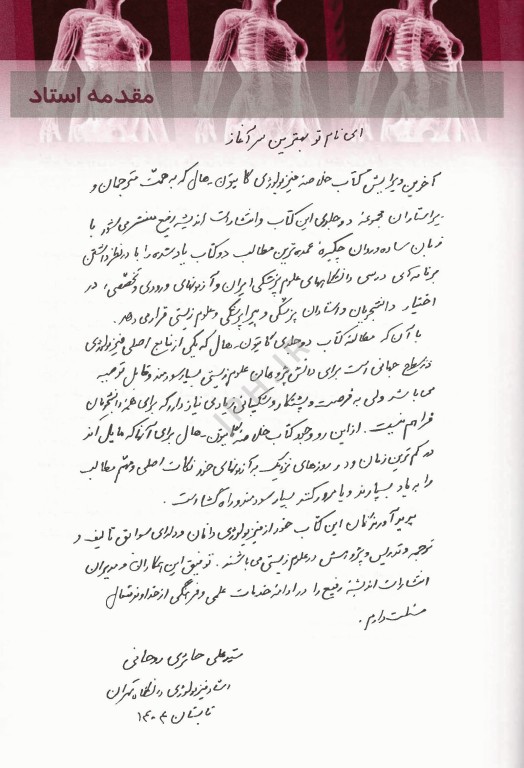 مقدمه استاد
ای نام تو بهترین سرآغاز
آخرین ویرایش کتاب خلاصه فیزیولوژی گایتون-هال که به همت مترجمان و
ویراستاران مجموعه دو جلدی این کتاب و انتشارات اندیشه رفیع منتشر می‌شود با
زبان ساده و روان چکیده عمده‌ترین مطالب دو کتاب یاد شده را با در نظر داشتن
برنامه‌های درسی دانشگاههای علوم پزشکی ایران و آزمونهای ورودی و تخصصی، در
اختیار دانشجویان و استادان پزشکی و پیراپزشکی و علوم زیستی قرار می‌دهد.
با آن که مطالعه کتاب دو جلدی گایتون-هال که یکی از منابع اصلی فیزیولوژی
در سطح جهانی است برای دانش‌پژوهان علوم زیستی بسیار سودمند و قابل توصیه
می باشد ولی به فرصت و پشتکار و شکیبائی زیادی نیاز دارد که برای همه دانشجویان
فراهم نیست. از این رو وجود کتاب خلاصه گایتون-هال برای آنها که مایل‌اند
در کم‌ترین زمان و در روزهای نزدیک به آزمونهای خود نکات اصلی و مهم مطالب
را به یاد بسپارند و یا مرور کنند بسیار سودمند و راه گشا است.
پدیدآورندگان این کتاب خود از فیزیولوژی دانان و دارای سوابق تألیف و
ترجمه و تدریس و پژوهش در علوم زیستی می باشند. توفیق این همکاران و مدیران
انتشارات اندیشه رفیع را در ادامه خدمات علمی و فرهنگی از خداوند متعال
مسئلت دارم.
سیدعلی حائری روحانی
استاد فیزیولوژی دانشگاه تهران
تابستان ۱۴۰۴